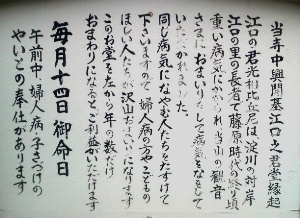 当寺中興開基江口之君堂縁起
江口の君光相比丘尼は淀川の対岸
江口の里の長者で藤原時代の終り頃
重い病気にかかられ当山の観音
さまにおまいりをして病気をなをして
いたゞかれました。
同じ病気になやむ人たちをたすけて
下さいますので婦人病の方やこどもの
ほしい人たちが沢山おまいりになります
このお堂を左から年の数だけ
おまわりになるとご利益がいただけます
毎月十四日御命日
午前中、婦人病・子さづけの
やいとの奉仕があります